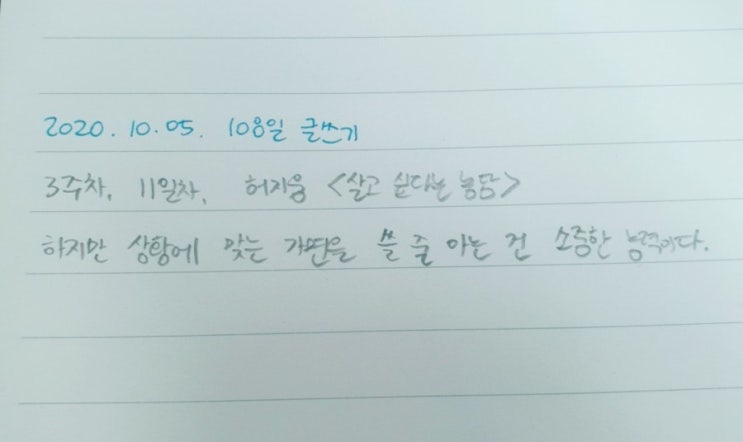 2020. 10. 05. 108일 글쓰기
3주차, 11일차, 허지웅 <살고 싶다는 농담>
하지만 상황에 맞는 가면을 쓸 줄 아는 건 소중한 능력이다.